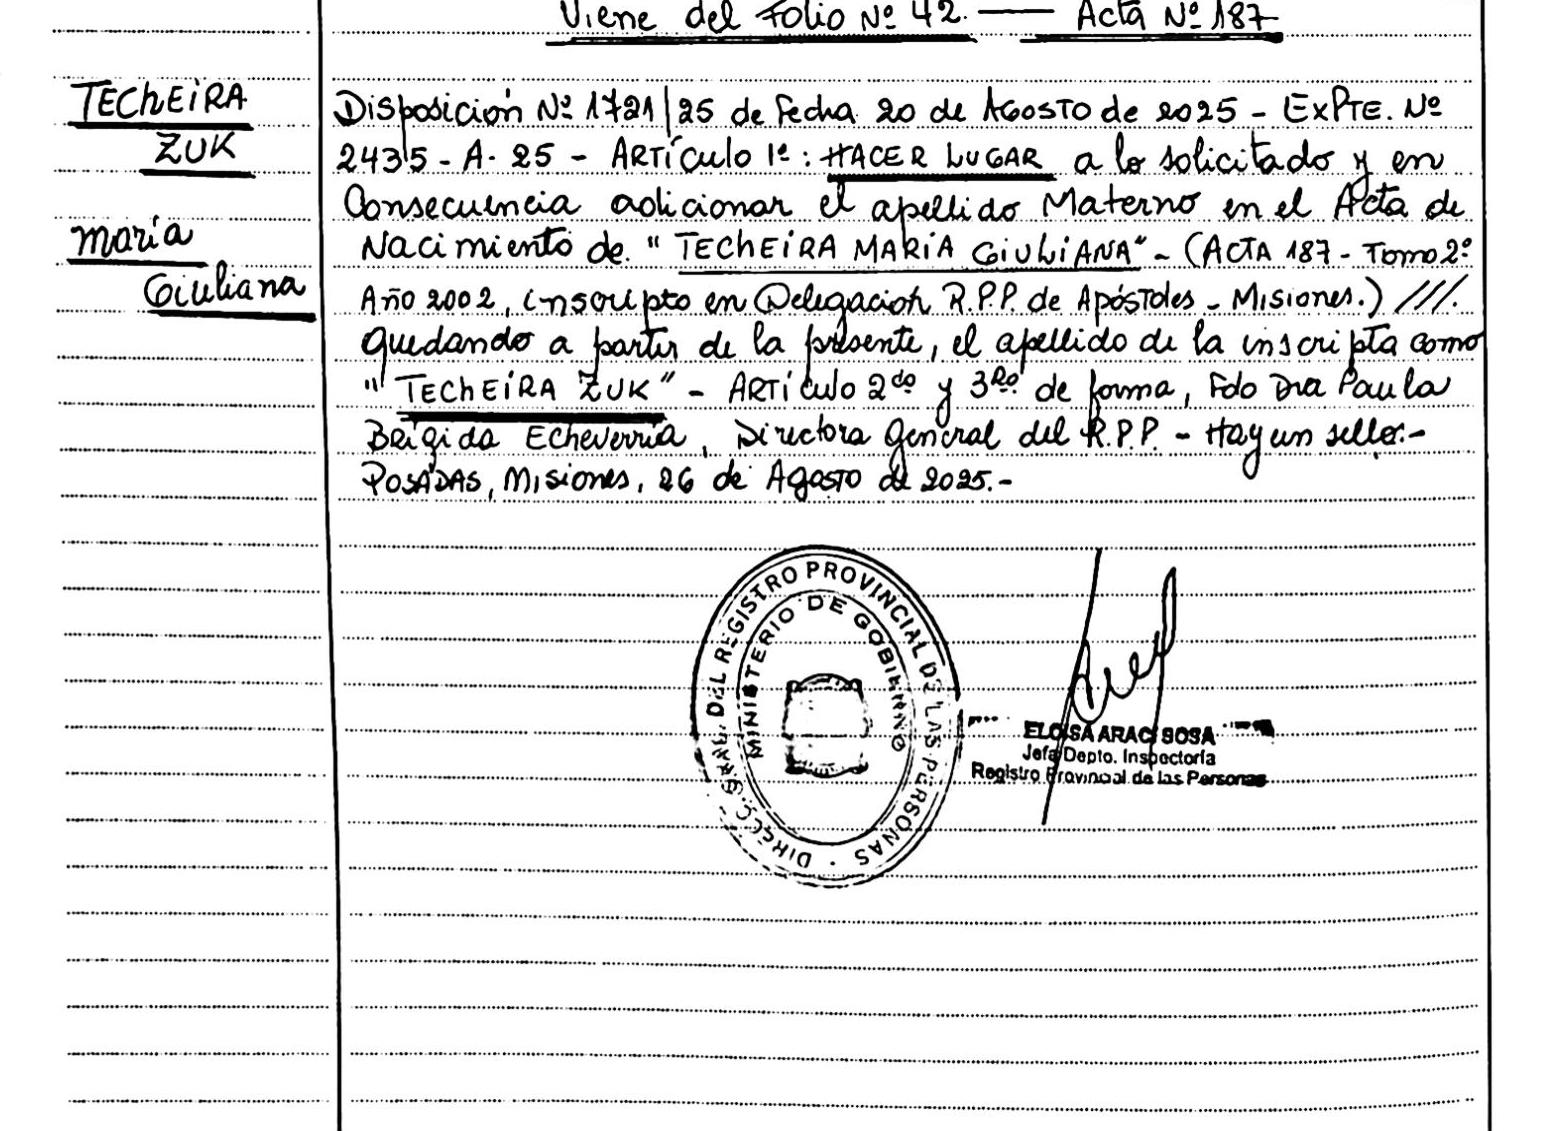 Viene del Folio Nº 42. — Acta Nº 187
TECHEIRA
ZUK
María
Giuliana
Disposición Nº 1721/25 de Fecha 20 de Agosto de 2025 - EXPTE. Nº
2435 - A - 25 - ARTÍCULO 1º: HACER LUGAR a lo solicitado y en
Consecuencia adicionar el apellido Materno en el Acta de
Nacimiento de "TECHEIRA MARÍA GIULIANA" - (ACTA 187 - Tomo 2º
Año 2002, inscripto en Delegación R.P.P. de Apóstoles - Misiones.) ///.
quedando a partir de la presente, el apellido de la inscripta como
"TECHEIRA ZUK" - ARTÍCULO 2do y 3Ro. de forma, Fdo Dra Paula
Brígida Echeverría, Directora General del R.P.P. - Hay un sello.-
POSADAS, Misiones, 26 de Agosto de 2025.-
DIRECC. GRAL. DEL REGISTRO PROVINCIAL DE LAS PERSONAS
MINISTERIO DE GOBIERNO
ELOISA ARACI SOSA
Jefa Depto. Inspectoría
Registro Provincial de las Personas